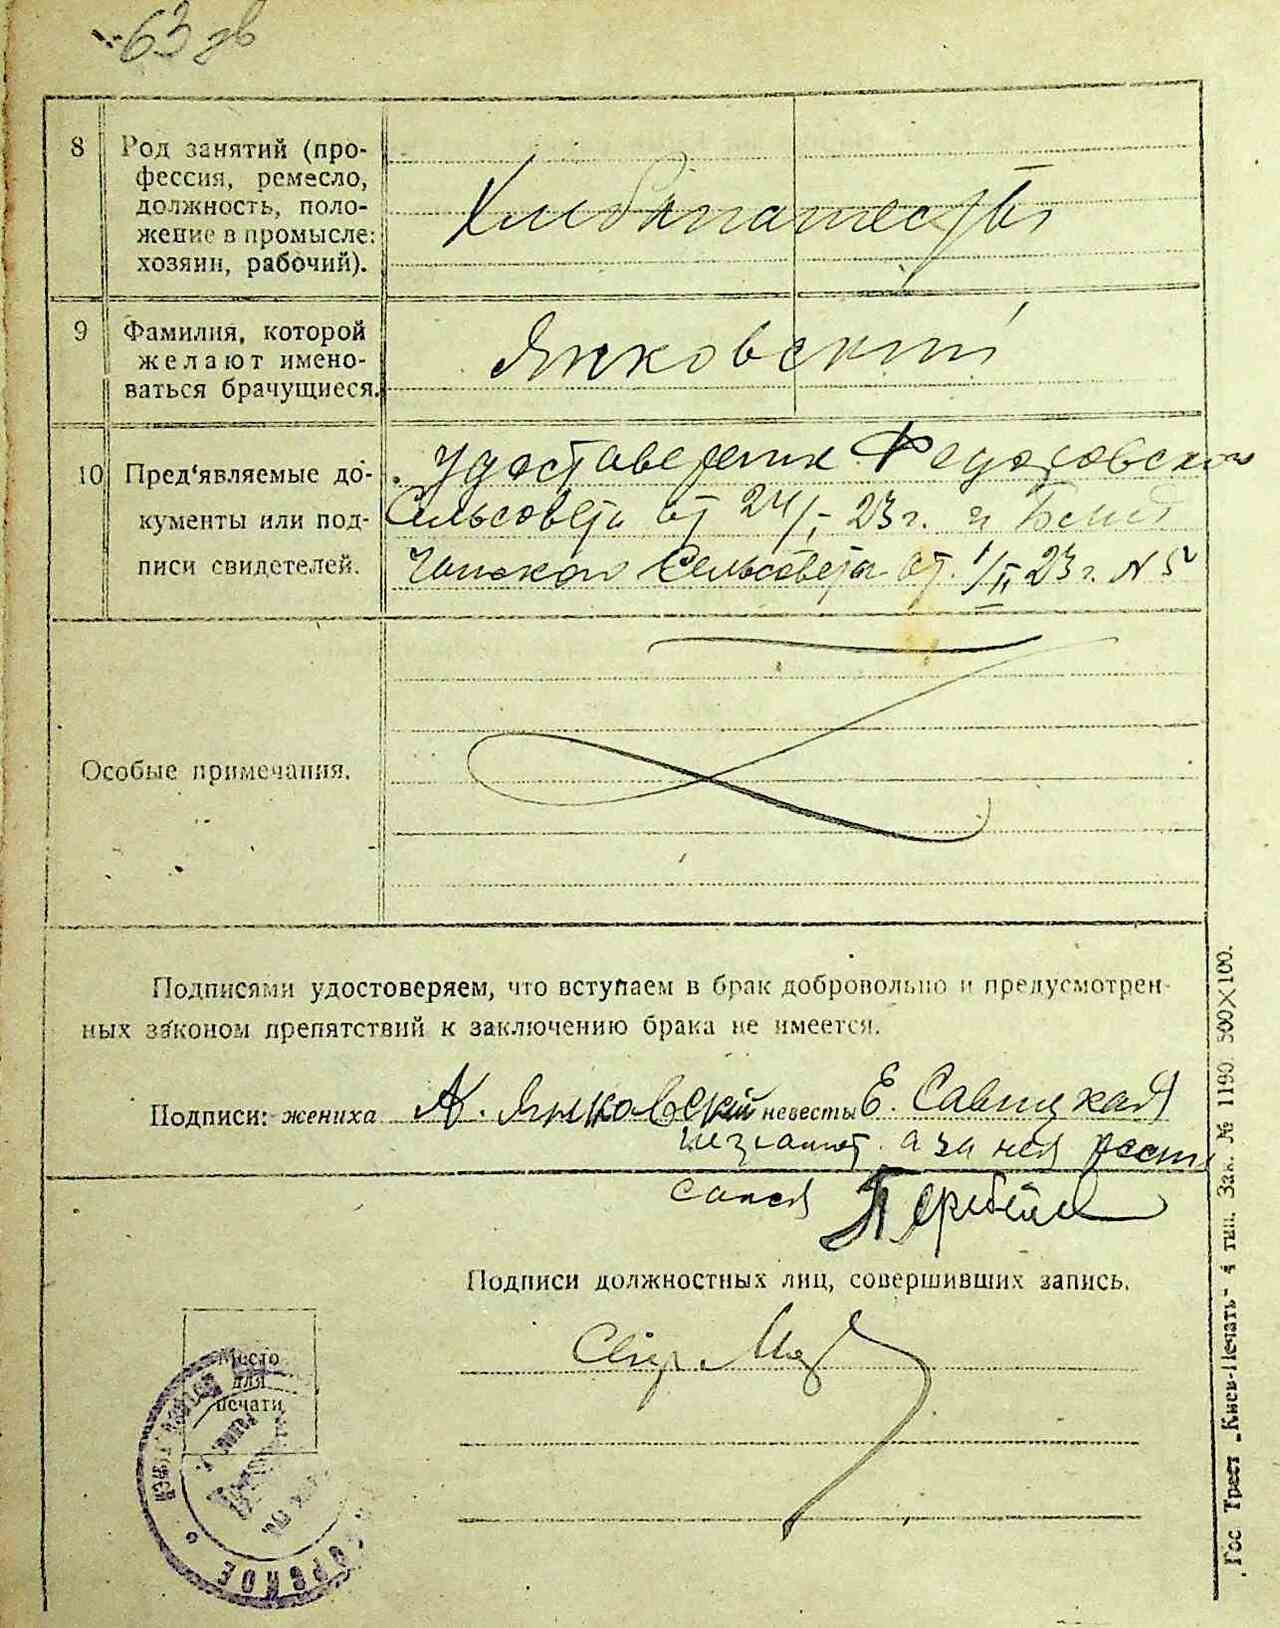 63 зв
8 Род занятий (про-
фессия, ремесло,
должность, поло-
жение в промысле:
хозяин, рабочий).
9 Фамилия, которой
желают имено-
ваться брачущиеся.
Янковский
10 Пред'являемые до-
кументы или под-
писи свидетелей.
Удоставерении Федоровского
Сельсовета от 24/I 23 г. и
Сельсовета от 1/II 23 г. N 5
Особые примечания.
Подписями удостоверяем, что вступаем в брак добровольно и предусмотрен-
ных законом препятствий к заключению брака не имеется.
Подписи: жениха А. Янковский невесты Е. Савицкая
а за нея роспи
сался
Подписи должностных лиц, совершивших запись.
Место
для
печати
Гос. Трест „Киев-Печать“ 4 тип. Зак. № 1190. 500×100.